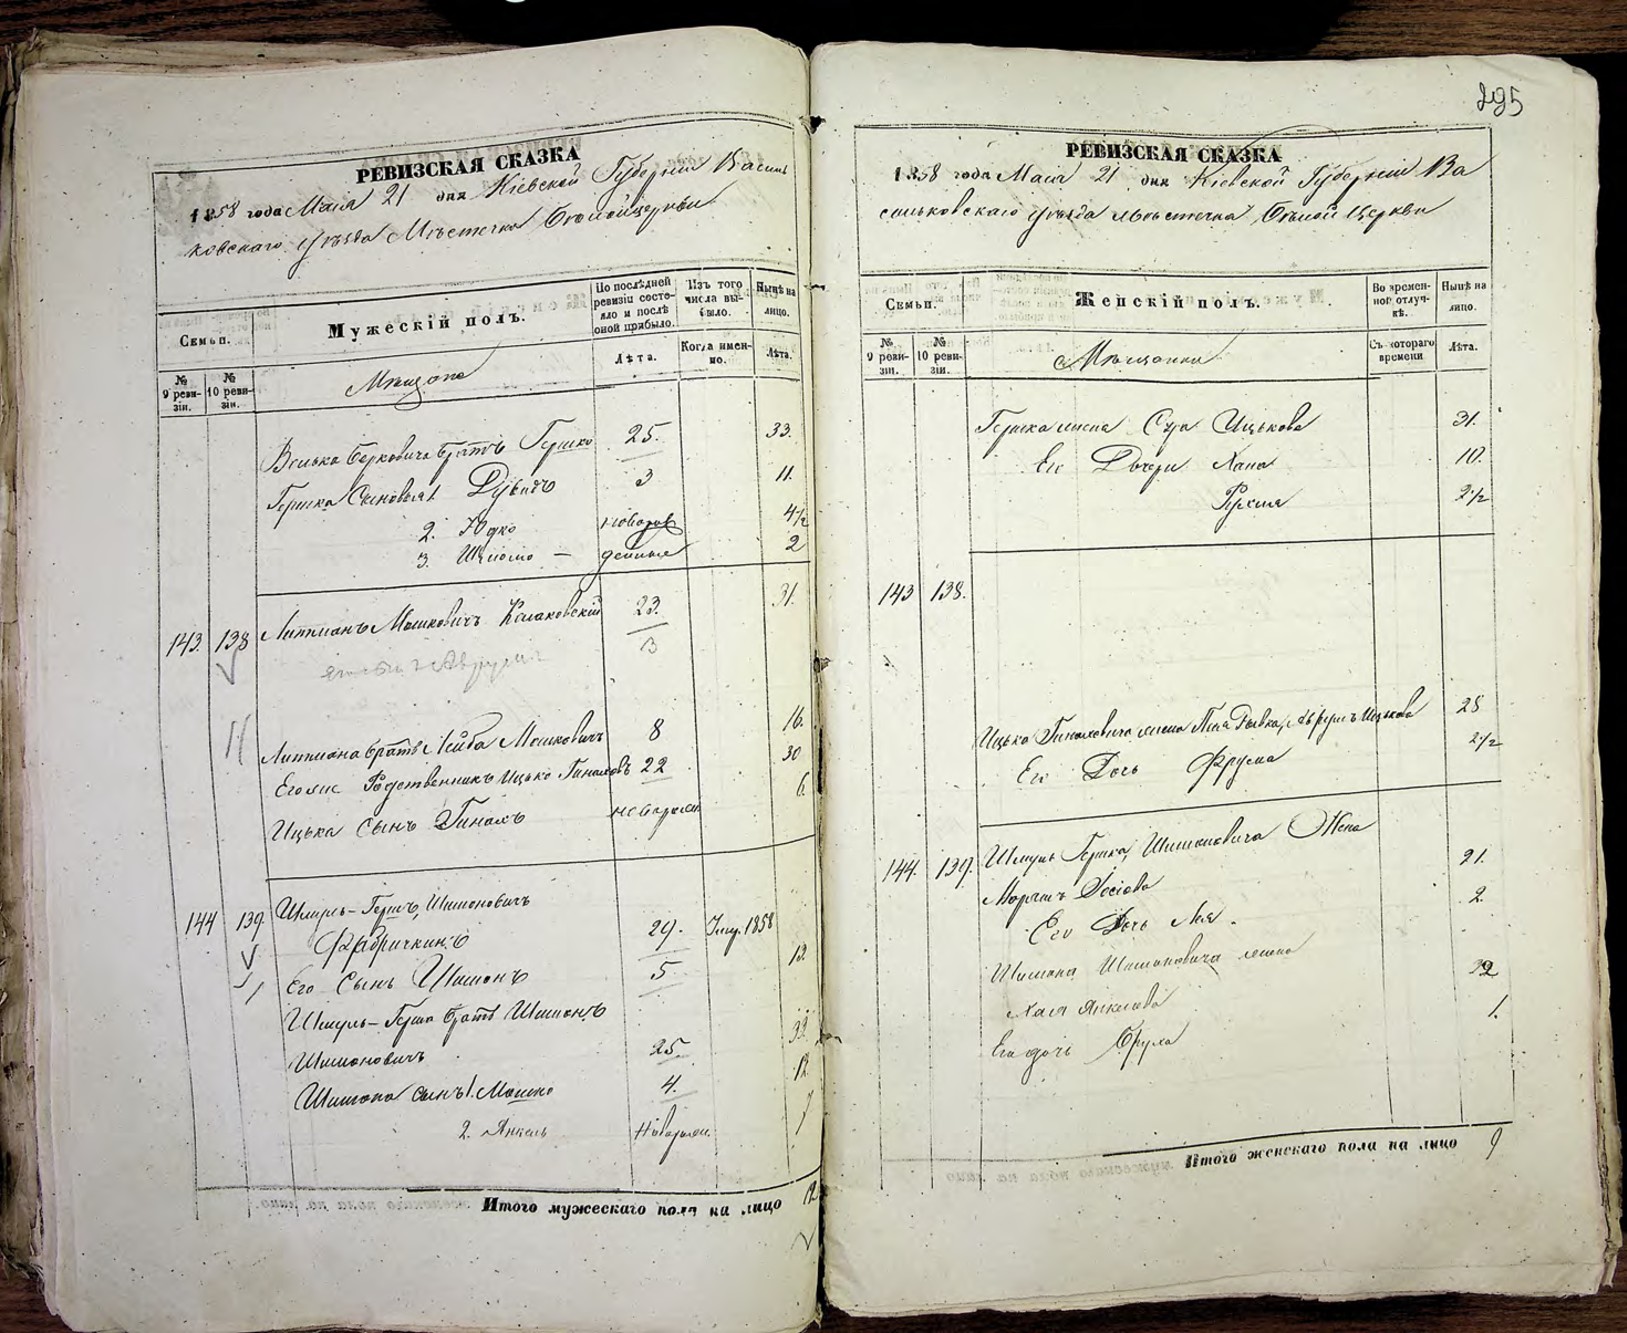 РЕВИЗСКАЯ СКАЗКА
1858 года Маія 21 дня Кіевской Губерніи Василь
ковскаго Уѣзда Мѣстечка Бѣлойцеркви
Семьи.
Мужескій полъ.
По послѣдней ревизіи состояло и послѣ оной прибыло.
Изъ того числа выбыло.
Нынѣ на лицо.
№ 9 ревизіи.
№ 10 ревизіи.
Мѣщане
Лѣта.
Когда именно.
Лѣта.
Волька Берковича братъ Гершко 25. 33.
Гершка Сыновья 1. Дувидъ 3 11.
2. Юдко новорож 4½
3. Шліомо — денные 2
143. 138 Липманъ Мошковичъ 23. 31.
3
Липмана братъ Лейба Мошковичъ 8 16.
Его же Родственникъ Ицько 22 30
Ицька Сынъ новорожд 6.
144 139. Шмуль-Гершъ Шимоновичъ
Фабричкинъ 29. 1858
Его Сынъ Шимонъ 5 13.
Шмуль-Герша братъ Шимонъ
Шимоновичъ 25 33.
Шимона сынъ 1. Мошко 4. 12
2. Янкель Новорожд. 7
Итого мужескаго пола на лицо 12
295
РЕВИЗСКАЯ СКАЗКА
1858 года Маія 21 дня Кіевской Губерніи Ва
сильковскаго Уѣзда мѣстечка Бѣлой Церкви
Семьи.
Женскій полъ.
Во временной отлучкѣ.
Нынѣ на лицо.
№ 9 ревизіи.
№ 10 ревизіи.
Мѣщанки
Съ котораго времени
Лѣта.
Гершка жена Сура Ицькова 31.
Его Дочери Хана 10.
2½
143 138.
Ицька жена Ицькова 28
Его Дочь Фрума 2½
144. 139. Шмуль Герша Шимоновича Жена
Маріямъ Іосіова 21.
Его Дочь Лея. 2.
Шимона Шимоновича жена
Хая Янкелева 32
Его дочь Фрума 1.
Итого женскаго пола на лицо 9